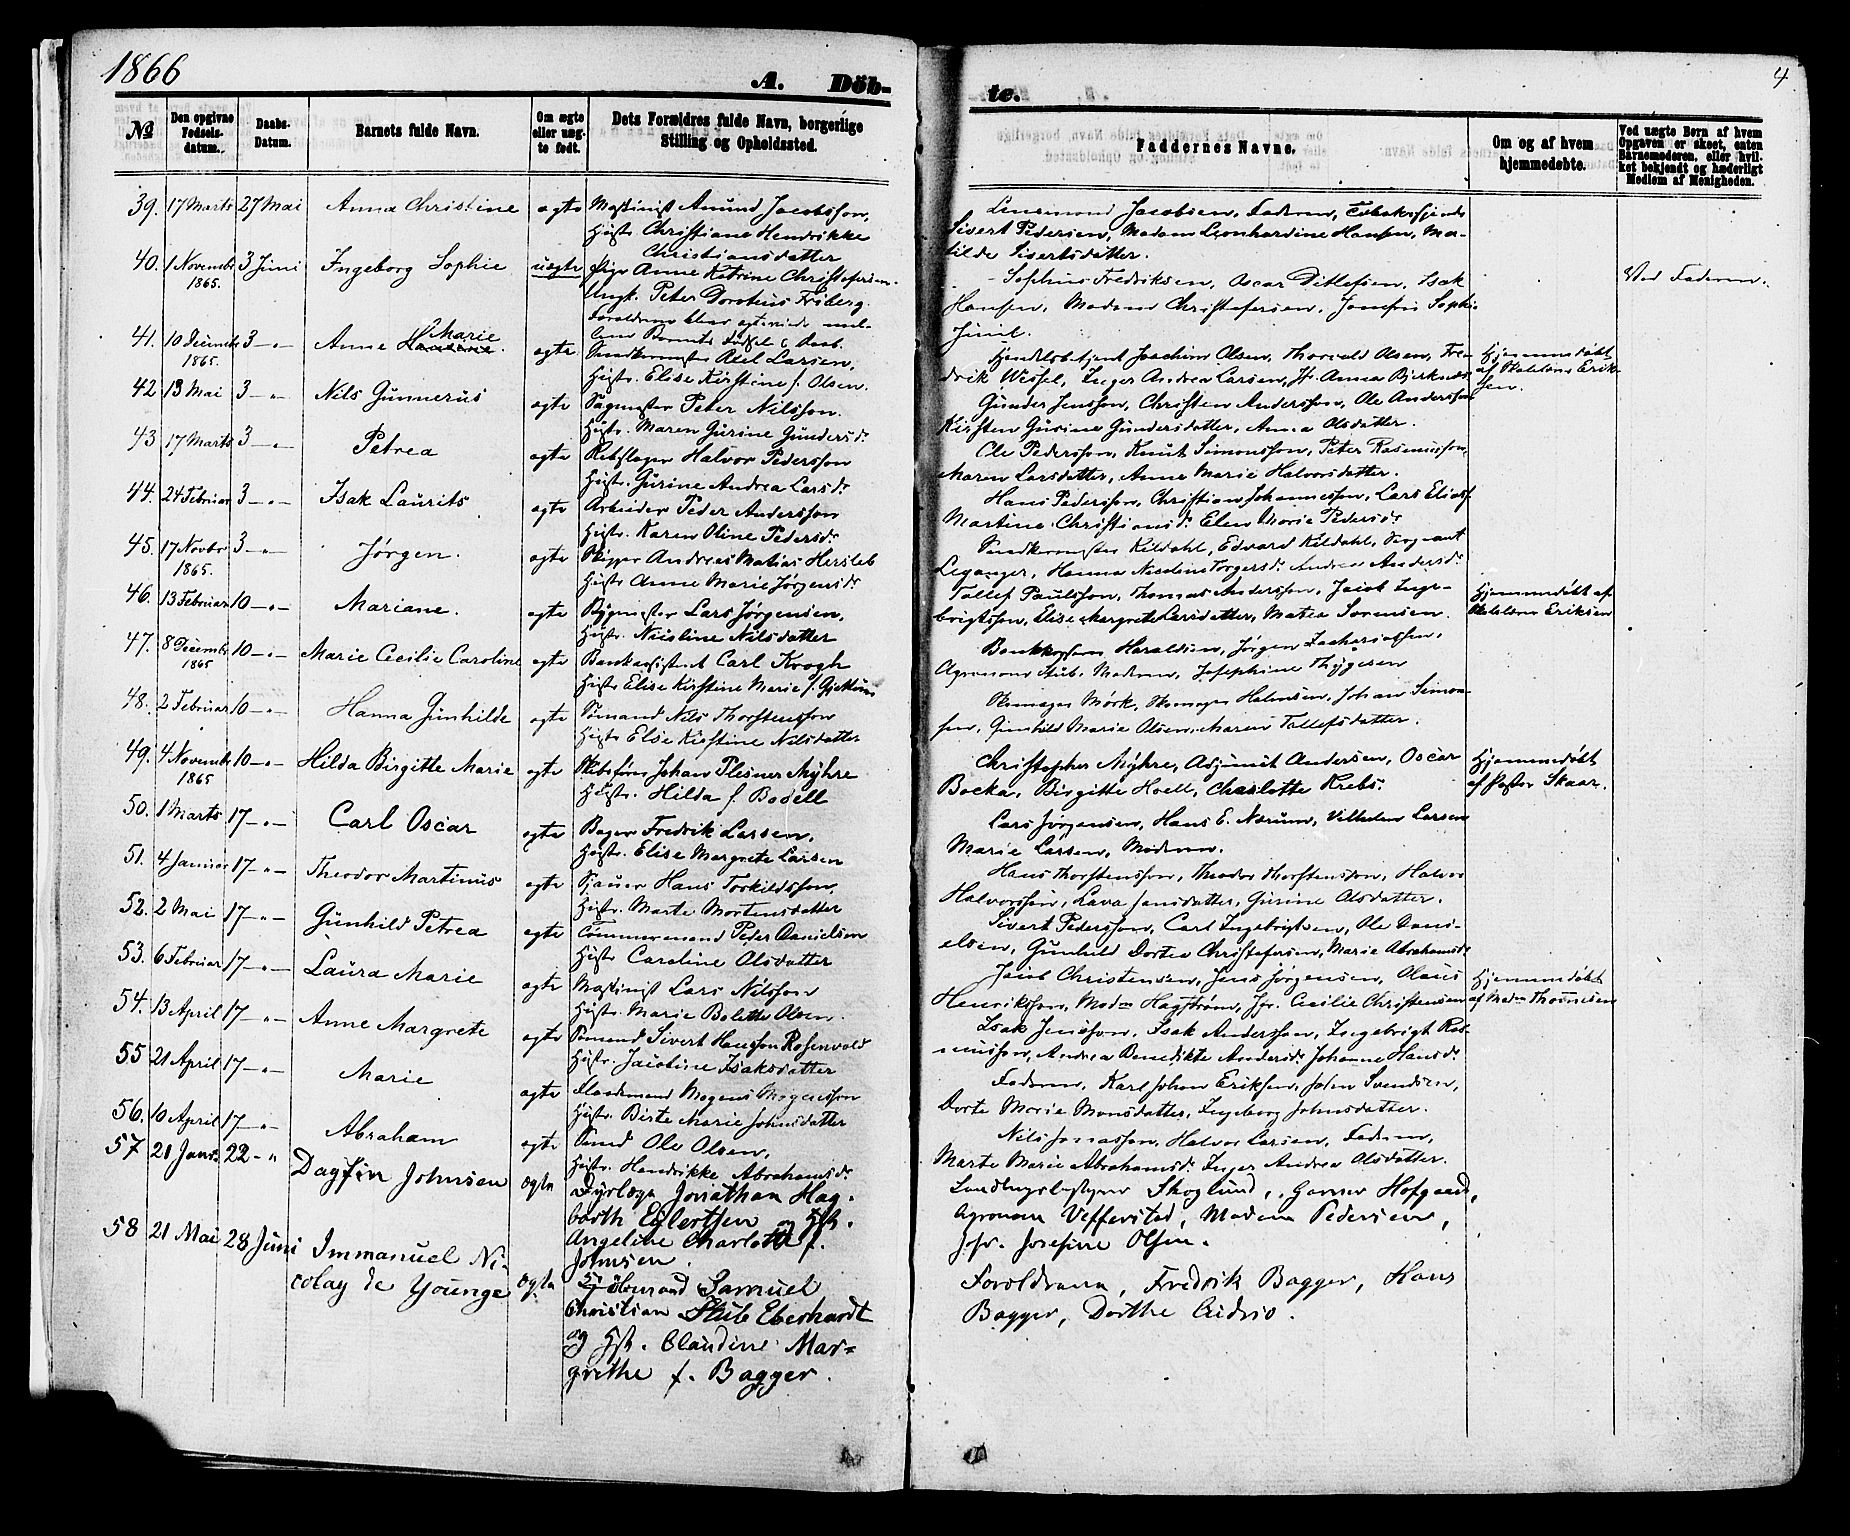 1866
A. Döb-
te.
4
No
Den opgivne Fødsels-datum.
Daabs-Datum.
Barnets fulde Navn.
Om ægte eller uæg-te født.
Dets Forældres fulde Navn, borgerlige Stilling og Opholdssted.
Faddernes Navne.
Om og af hvem hjemmedøbte.
Ved uægte Børn af hvem Opgaven er skeet, enten Barnemoderen, eller hvil-ket bekjendt og hæderligt Medlem af Menigheden.
39. 17 Marts 27 Mai Anna Christine ægte Maskinist Amund Jacobsson,
Hustr. Christiane Hendrikke
Christiansdatter
Jacobsen, Faderen,
Sivert Pedersen, Madam Leonhardine Hansen, Ma-
tilde Sivertsdatter.
40. 1 Novembr 1865. 3 Juni Ingeborg Sophie uægte Pige Anne Katrine Christofersen.
Ungk. Peter Dorotius Friberg.
Forældrene blev ægteviede mel-
lem Barnets Fødsel & Daab.
Sophus Fredriksen, Oscar Ditlefsen, Isak
Hansen, Madam Christofersen, Josefin Sophi
Juul.
Ved Faderen.
41. 10 Decembr 1865. 3 -"- Anne Marie ægte Axel Larsen,
Hustr. Elise Kirstine f. Olsen.
Joachim Olsen, Thorvald Olsen, Fre-
drik Wessel, Inger Andrea Larsen, Jfr. Anna
Hjemmedøbt
af Erik-
sen.
42 13 Mai 3 -"- Nils Gunnerus ægte Sagmester Peter Nilsson.
Hustr. Maren Gurine Gundersdr
Gunder Jensson, Christen Andersson, Ole Andersson
Kirsten Gurine Gundersdatter, Anna Olsdatter.
43 17 Marts 3 -"- Petrea ægte Rebslager Halvor Pedersson
Hustr. Gurine Andrea Larsdr
Ole Pedersson, Knut Simonsson, Peter Rasmusson,
Maren Larsdatter, Anne Marie Halvorsdatter.
44. 24 Februar 3 -"- Isak Laurits ægte Arbeider Peder Andersson
Hustr. Karen Oline Pedersdr
Hans Pedersson, Christian Johannesson, Lars Eliass.
Martine Christiansdr Elen Marie Pedersdr
45. 17 Novbr 1865. 3 -"- Jørgen. ægte Skipper Andreas Matias Hersleb
Hustr Anne Marie Jørgensdr
Kildahl, Edvard Kildahl, Sergeant
Leganger, Hanna Nicoline Torgersdr Andrea Andersdr
46. 13 Februar 10 -"- Mariane. ægte Bygmester Lars Jørgensen,
Hustr. Nicoline Nilsdatter
Tollef Paulsson, Thomas Andersson, Jacob Inge-
brigtsson, Elise Margrete Larsdatter, Matea Sørensen.
Hjemmedøbt af
Eriksen
47. 8 Decembr 1865 10 -"- Marie Cecilie Caroline ægte Bankassistent Carl Krogh
Hustr Elise Kirstine Marie f.
Haraldsen, Jørgen Zachariassen,
Agronom Stub, Moderen, Josephine Thygesen
48. 2 Februar 10 -"- Hanna Gunhilde ægte Sømand Nils Thorstensson
Hustr Else Kirstine Nilsdatter
Skomager Mørk, Skomager Halvorsen, Johan Simon-
sen, Gunhild Marie Olsen, Maren Tollefsdatter.
49. 4 Novembr 1865 10 -"- Hilda Birgitte Marie ægte Skibsfører Johan Plesner Myhre
Hustr. Hilda f. Bodell
Christopher Myhre, Adjunct Andersen, Oscar
Bocka, Birgitte Hoell, Charlotte Krebs.
Hjemmedøbt
af Pastor Skaar.
50. 1 Marts 17 -"- Carl Oscar ægte Bager Fredrik Larsen,
Hustr. Elise Margrete Larsen
Lars Jørgensen, Hans E. Nærum, Vilhelm Larsen
Marie Larsen, Moderen.
51. 4 Januar 17 -"- Theodor Martinus ægte Sjauer Hans Torkildsson,
Hustr. Marte Mortensdatter
Hans Thorstensson, Theodor Thorstensson, Halvor
Halvorssen, Lava Jensdatter, Gurine Olsdatter.
52. 2 Mai 17 -"- Gunhild Petrea ægte Tømmermand Peder Danielsen
Hustr Caroline Olsdatter
Sivert Pedersson, Carl Ingebrigtsen, Ole Dani-
elsen, Gunhild Dortea Christofersen, Marie Abrahamsdr
53. 6 Februar 17 -"- Laura Marie ægte Maskinist Lars Nilsson
Hustr. Marie Bolette Olsen.
Jacob Christensen, Jens Jørgensen, Olaus
Henriksson, Madm Hagstrøm, Jfr. Cecilie Christensen
Hjemmedøbt
af Madm Thomesen
54. 13 April 17 -"- Anne Margrete ægte Sømand Sivert Hansson Rosenvold
Hustr. Jacobine Isaksdatter
Isak Jensson, Isak Andersson, Ingebrigt Ras-
musson, Andrea Benedikte Andersdr Johanne Hansdr
55 21 April 17 -"- Marie ægte Mogens Mogensson
Hustr. Birte Marie Johnsdatter
Faderen, Karl Johan Eriksen, John Svendsen,
Dorte Marie Monsdatter, Ingeborg Johnsdatter.
56. 10 April 17 -"- Abraham ægte Smed Ole Olsen,
Hustr. Hendrikke Abrahamsdr
Nils Jonasson, Halvor Larsen, Faderen,
Marte Marie Abrahamsdr Inger Andrea Olsdatter.
57 21 Janr. 22 -" Dagfin Johnsen ægte Dyrlæge Jonathan Hag-
barth Eilertsen og Hst.
Angeline Charlotte f.
Johnsen.
Skoglund, Gartner Hofgaard,
Agronom Veffersted, Madam Pedersen,
Jfr. Josefine Olsen.
58 21 Mai 28 Juni Immanuel Ni-
colay de Younge ægte Sømand Samuel
Christian Stub Eberhardt
og Hst. Claudine Mar-
grethe f. Bagger.
Forældrene, Fredrik Bagger, Hans
Bagger, Dorthe